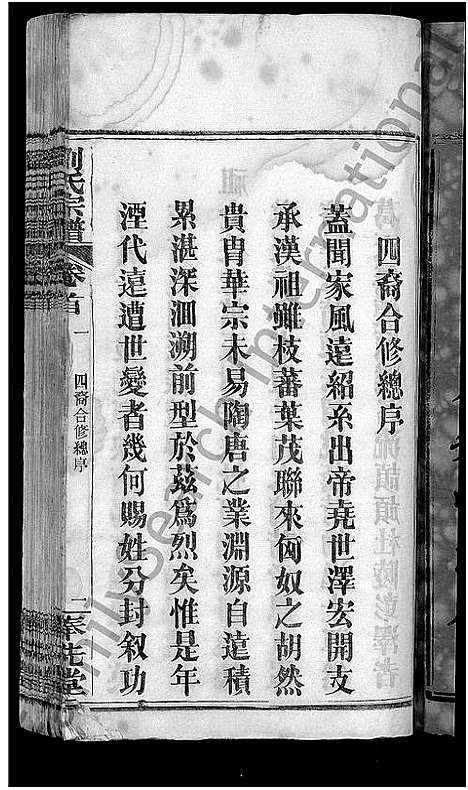 四裔合修總序
蓋聞家風遠紹系出帝堯世澤宏開支
承漢祖雖枝蕃葉茂聯來匈奴之胡然
貴胄華宗未易陶唐之業淵源自遠積
累湛深洄溯前型於茲爲烈矣惟是年
湮代遠遭世變者幾何賜姓分封叙功
劉氏宗譜 卷首 一 四裔合修總序 二